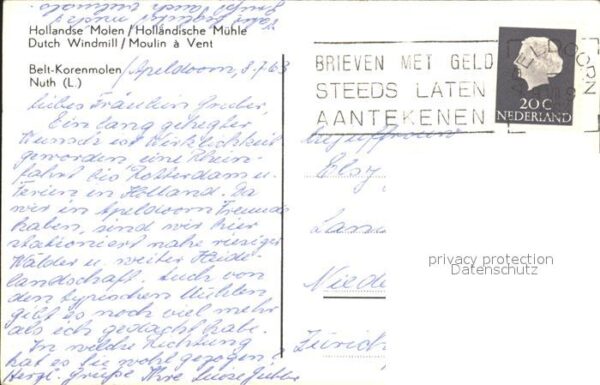 Hollandse Molen / Holländische Mühle
Dutch Windmill / Moulin à Vent
Belt-Korenmolen
Nuth (L.)
Apeldoorn, 8.7.63
Liebes Fräulein
Ein lang gehegter
Wunsch ist Wirklichkeit
geworden, eine Rhein-
fahrt bis Rotterdam u.
Ferien in Holland. Da
wir in Apeldoorn Freunde
haben, sind wir hier
stationiert nahe riesiger
Wälder u. weiter Heide-
landschaft. Auch von
den typischen Mühlen
gibt es noch viel mehr
als ich gedacht habe.
In welche Richtung
hat es Sie wohl gezogen?
Herzl. Grüße Ihre Luise
BRIEVEN MET GELD
STEEDS LATEN
AANTEKENEN
APELDOORN
20 C
NEDERLAND
Elsy
Lan
Niede
Zürich
privacy protection
Datenschutz